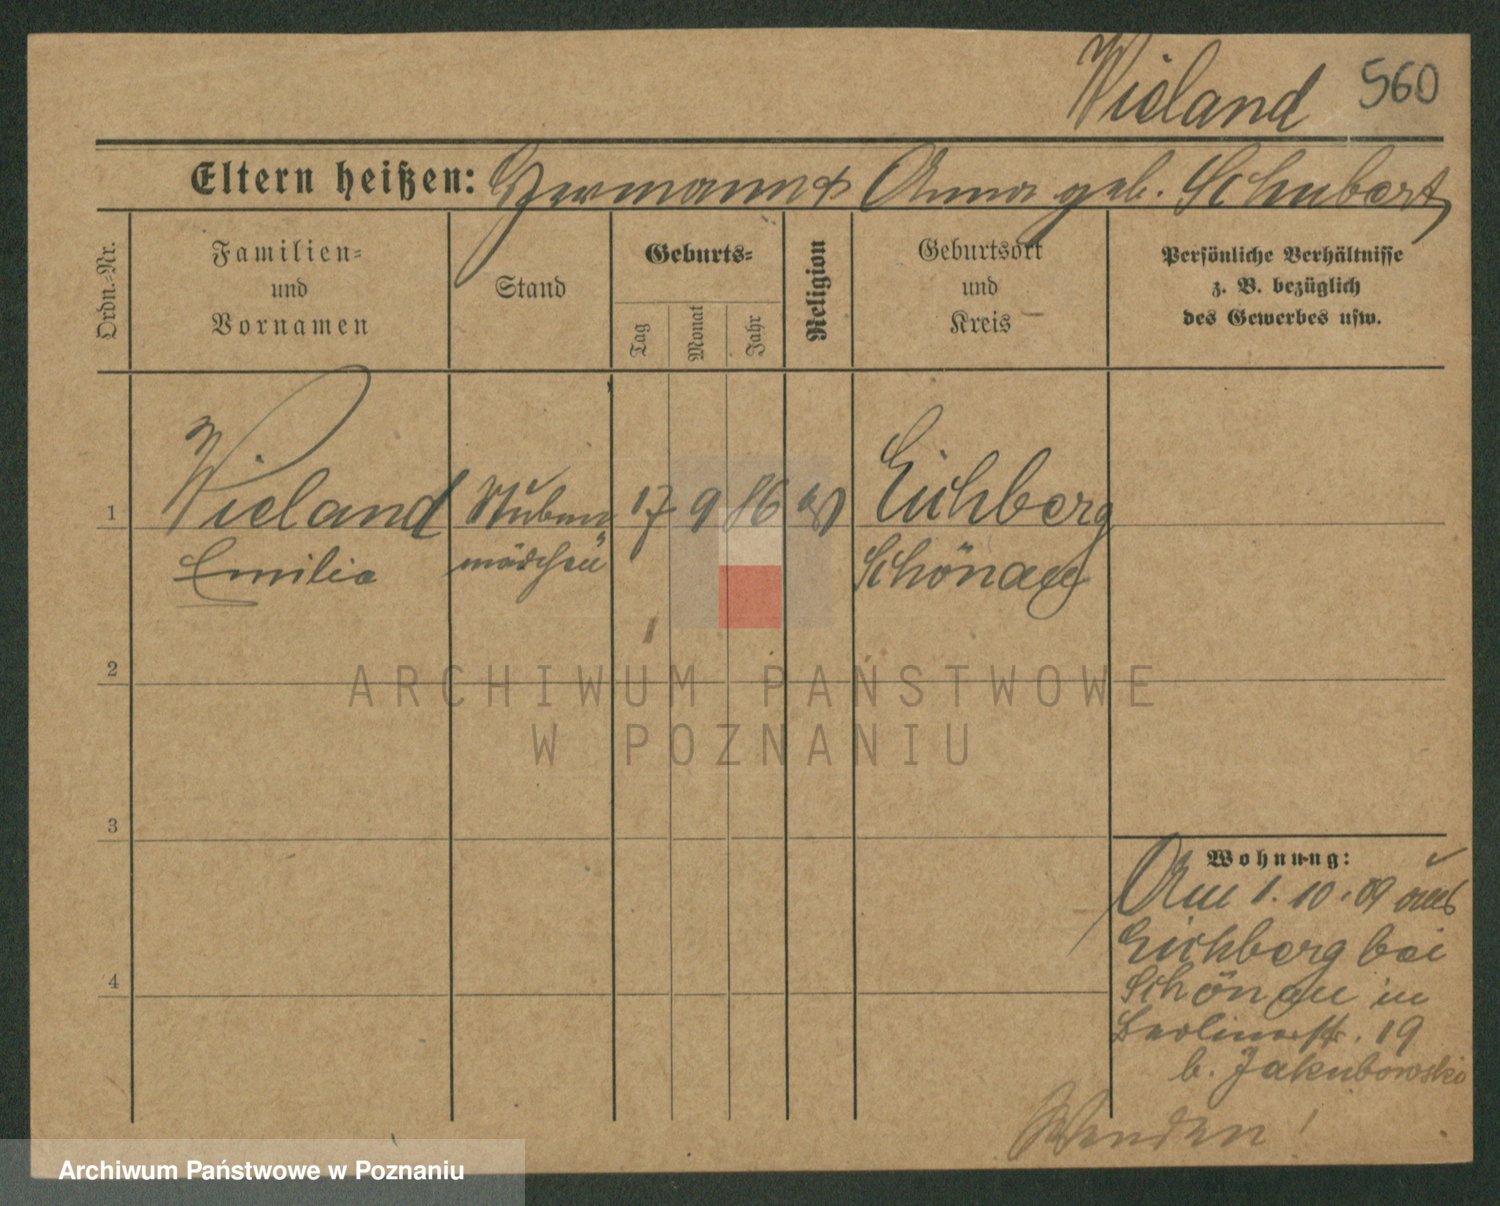 Wieland 560
Eltern heißen: Hermann & Anna geb. Schubert
Ordn.-Nr.
Familien-
und
Vornamen
Stand
Geburts-
Tag
Monat
Jahr
Religion
Geburtsort
und
Kreis
Persönliche Verhältnisse
z. B. bezüglich
des Gewerbes usw.
1 Wieland Stuben 17 9 86 Eichberg
Emilie mädchen Schönau
2
3
4
Wohnung:
Am 1. 10. 09 aus
Eichberg bei
Schönau in
Berlinerstr. 19
b. Jakubowski
Wenden!
ARCHIWUM PAŃSTWOWE
W POZNANIU
Archiwum Państwowe w Poznaniu